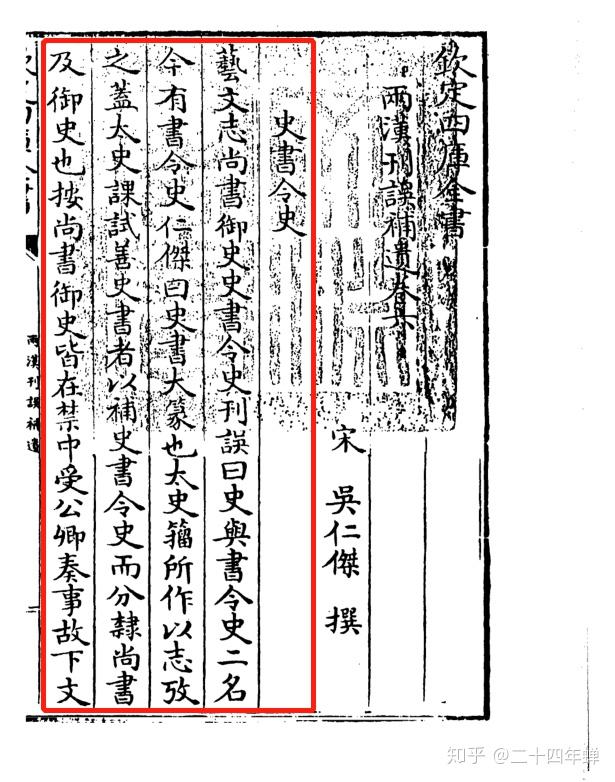 欽定四庫全書
兩漢刊誤補遺卷
宋 吳仁傑 撰
史書令史
藝文志尚書御史史書令史刊誤曰史與書令史二名
今有書令史仁傑曰史書大篆也太史籀所作以志攷
之蓋太史課試善史書者以補史書令史而分隷尚書
及御史也按尚書御史皆在禁中受公卿奏事故下文
兩漢刊誤補遺
知乎 @二十四年蝉